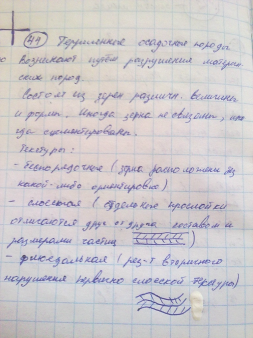 44 Терригенные осадочные породы
Возникают путём разрушения материн-
ских пород.
Состоят из зерен различн. величины
и формы. Иногда зерна не связаны, ино
гда сцементированы.
Текстуры:
- беспорядочная (зерна расположены без
какой-либо ориентировки)
- слоистая (отдельные прослойки
отличаются друг от друга составом и
размерами частиц )
- флюидальная (рез-т вторичного
нарушения первично слоистой текстуры)